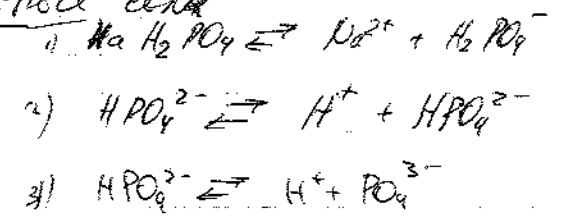 1) NaH₂PO₄ ⇄ Na²⁺ + H₂PO₄⁻
2) HPO₄²⁻ ⇄ H⁺ + HPO₄²⁻
3) HPO₄²⁻ ⇄ H⁺ + PO₄³⁻